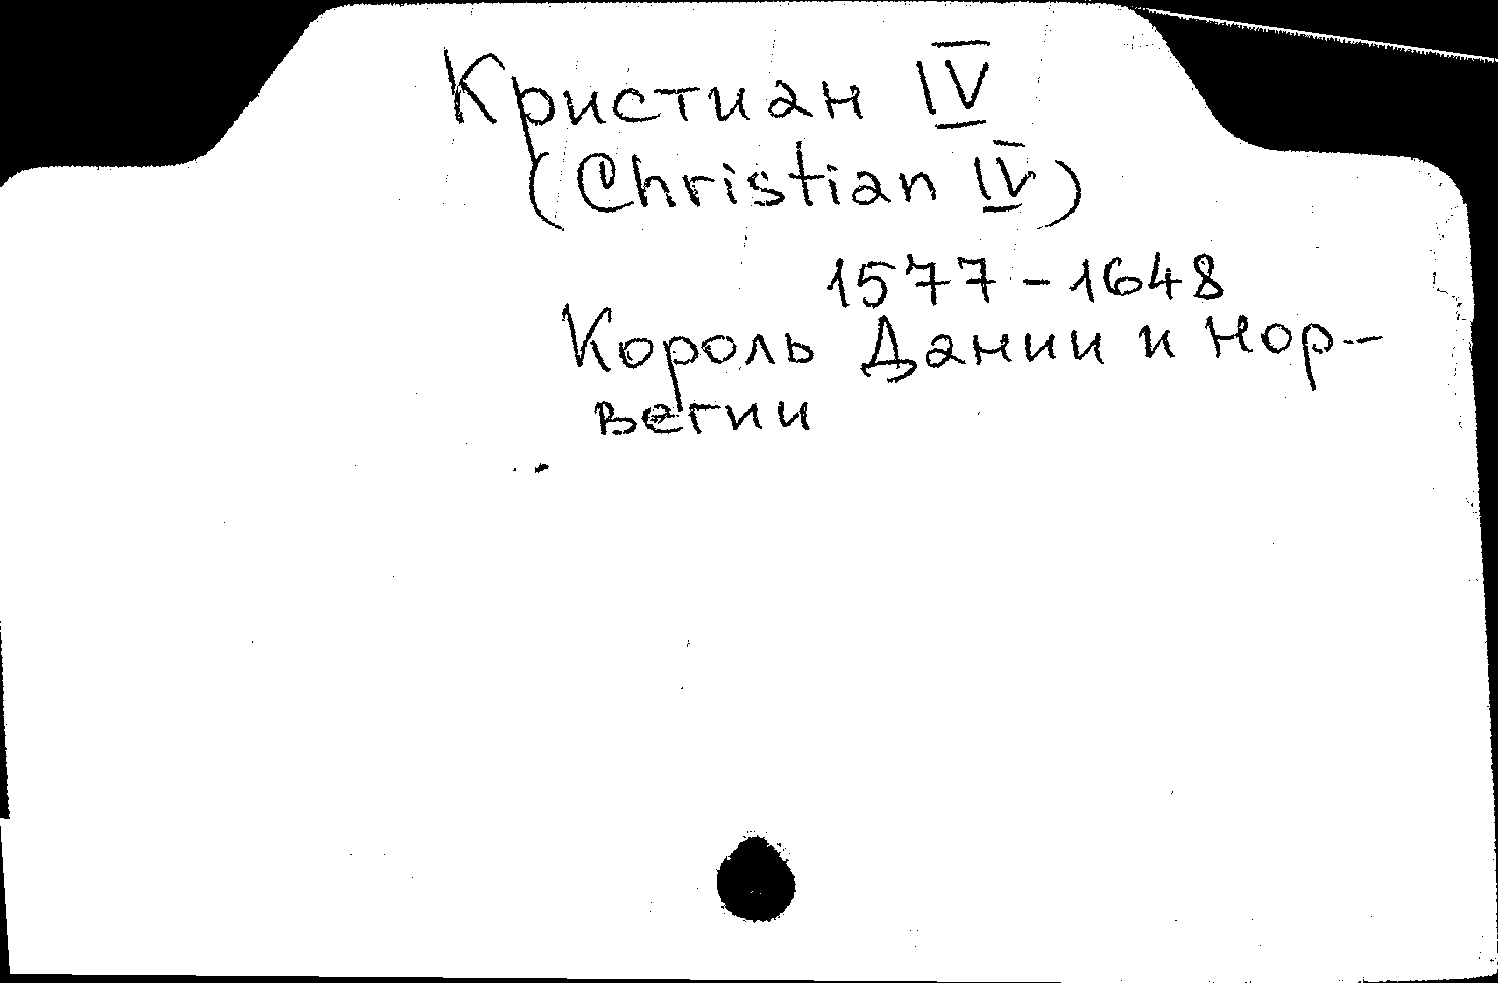 Кристиан IV
(Christian IV)
1577-1648
Король Дании и Нор-
вегии